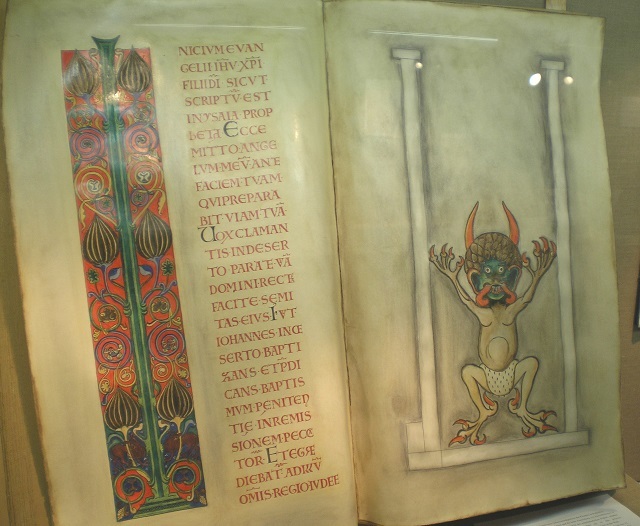 NICIVM EVAN
GELII IHV XPI
FILII DI SICVT
SCRIPTV EST
IN YSAIA PROP
hETA ECCE
MITTO ANGE
LVM MEVANTE
FACIEM TVAM
QVI PREPARA
BIT VIAM TVA
UOX CLAMAN
TIS IN DESER
TO PARATE VIA
DOMINI RECT
FACITE SEMI
TAS EIVS FVIT
IOHANNES IN DE
SERTO BAPTI
ZANS ET PDI
CANS BAPTIS
MVM PENITEN
TIE IN REMIS
SIONEM PECCA
TOR ET EGRE
DIEBAT AD ILLV
OMIS REGIO IVDEE